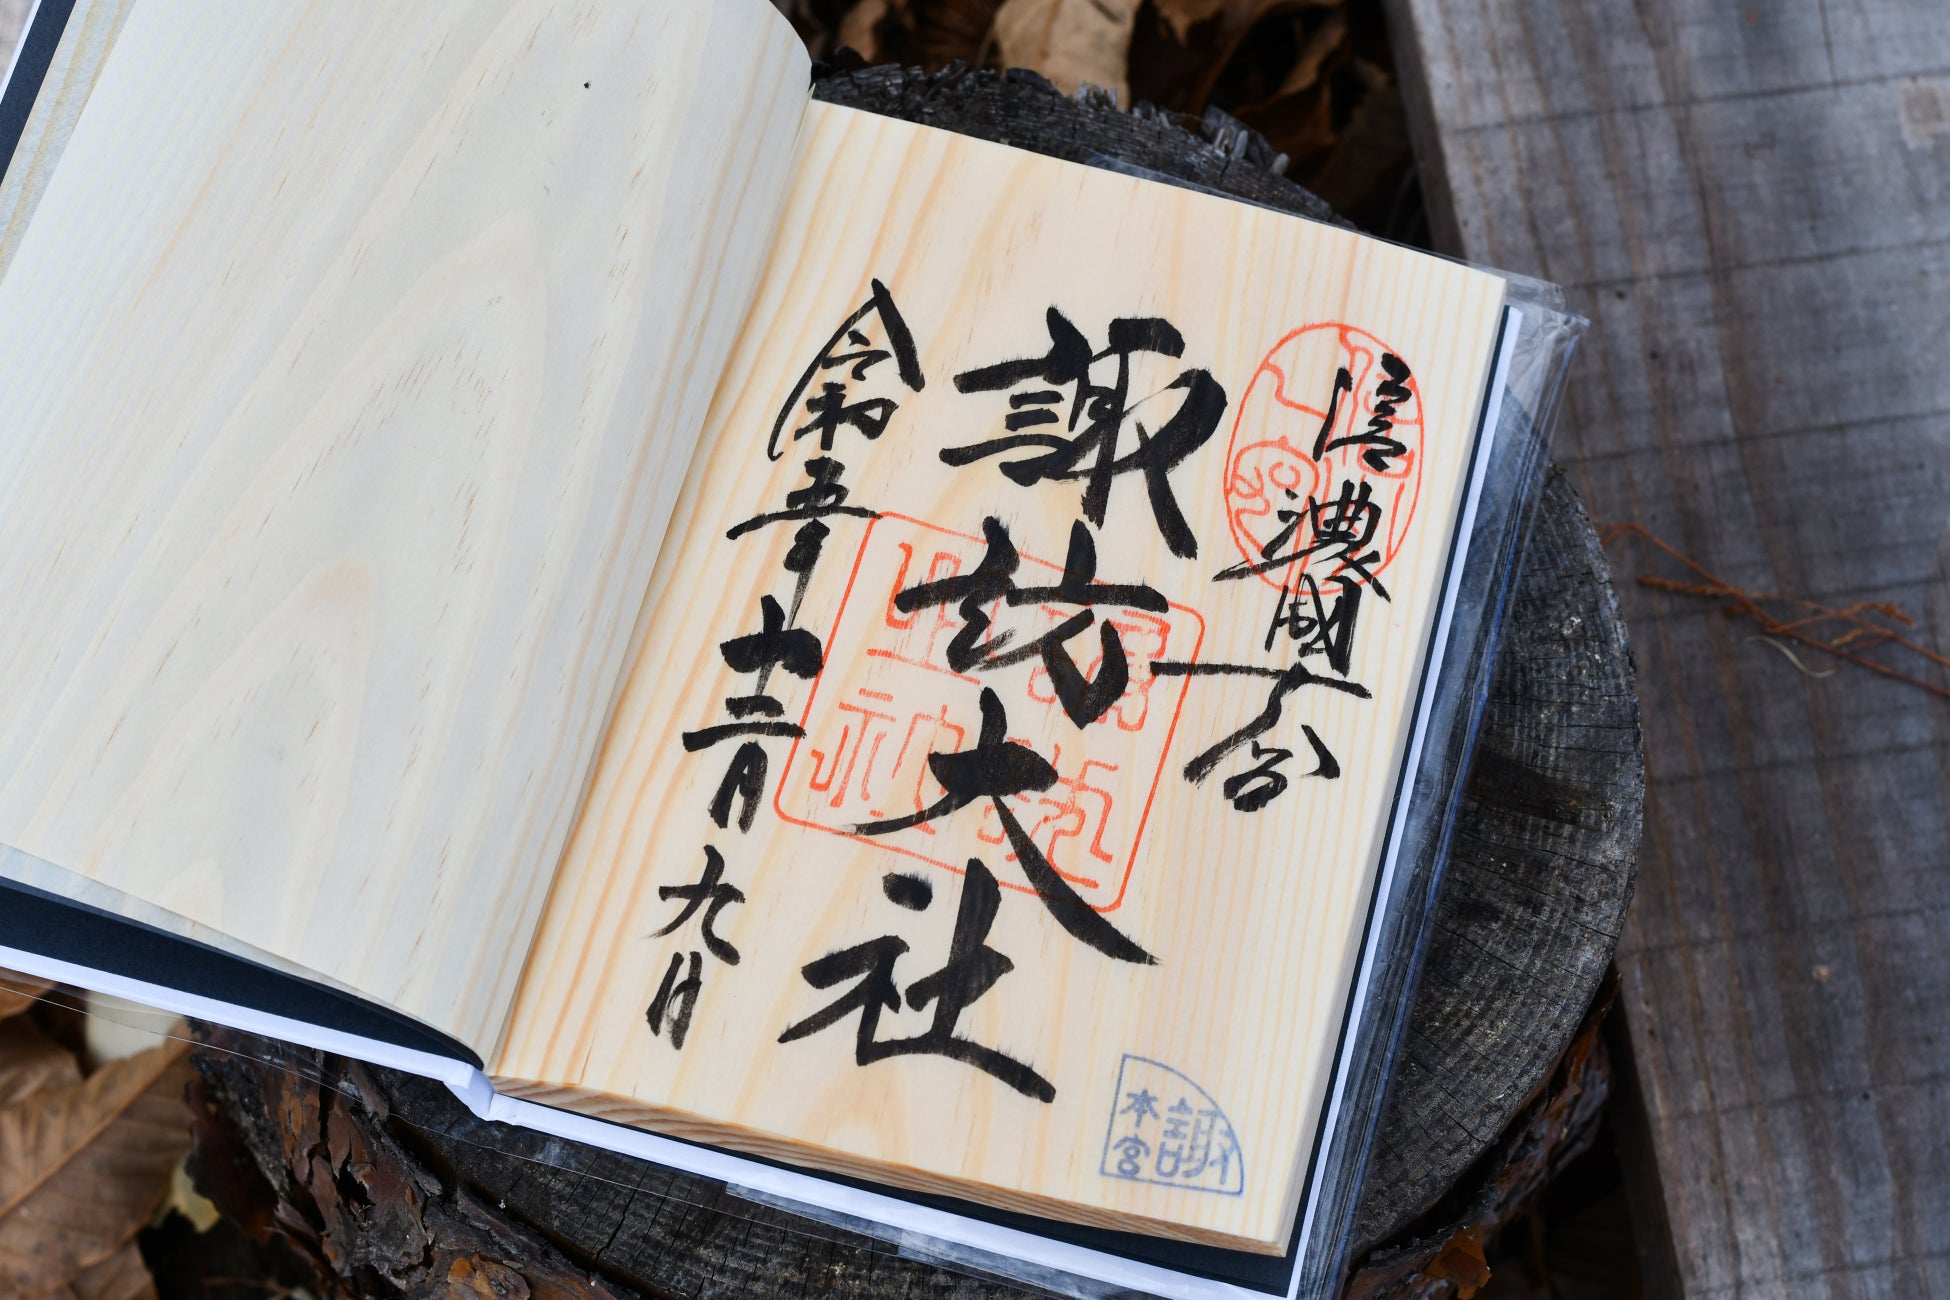 信濃國一之宮
諏訪大社
令和五年十二月九日
諏
本宮